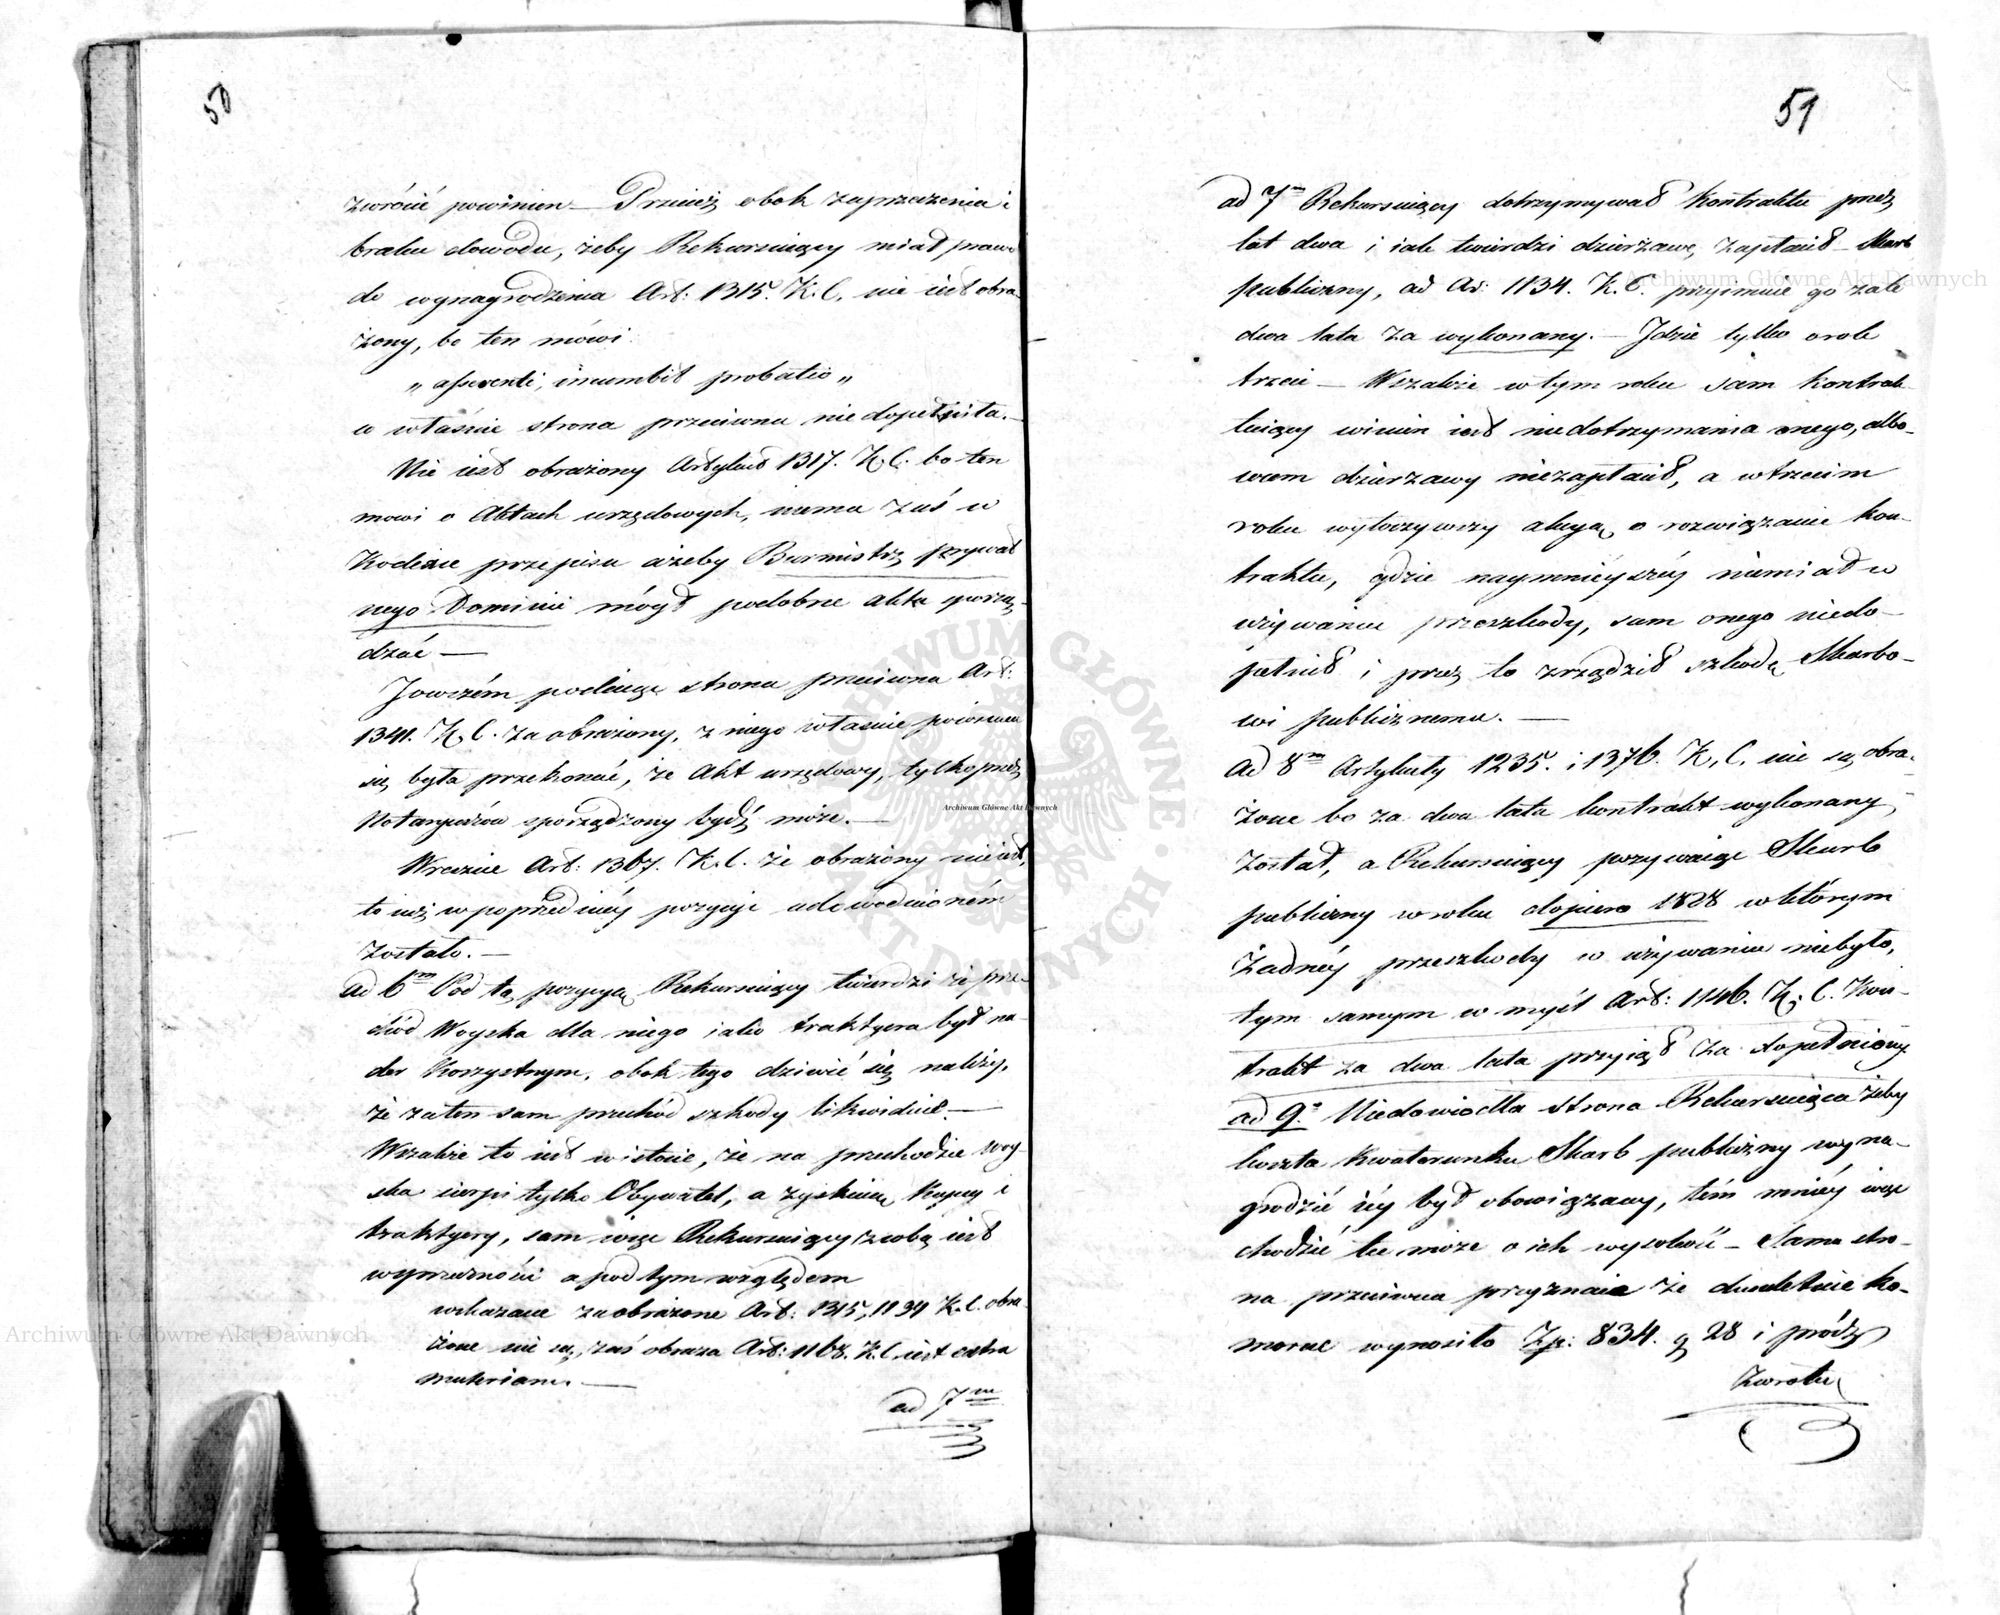 50
zwrócić powinien — Przeież obok zaprzeczenia i
braku dowodu, żeby Rekursuiący miał prawo
do wynagrodzenia Art: 1315. K.C. nie iest obra-
żony, bo ten mówi:
„ asserenti, incumbit probatio „
a właśnie strona przeciwna niedopełniła. —
Nie iest obrażony Artykuł 1317. K.C. bo ten
mowi o Aktach urzędowych, niema zaś w
Kodexie przepisu ażeby Burmistrz prywat
nego Dominii mógł podobne akta sporzą-
dzać —
Jowszém podciąga strona przeciwna Art:
1341. K.C. za obrażony, z niego właśnie powinna
się była przekonać, że Akt urzędowy, tylko przez
Notaryuszów sporządzony bydź może. —
Wreszcie Art: 1367. K.C. że obrażony nie iest,
to iuż w poprzedniéy pozycyi udowodnioném
zostało. —
ad 6m Pod tą pozycyą Rekursuiący twierdzi że prze-
chód Woyska dla niego iako traktyera był na-
der korzystnym, obok tego dziwić się należy,
że za ten sam przechód szkody likwiduie. —
Wszakże to iest w istocie, że na przechodzie woy-
ska cierpi tylko Obywatel, a zyskuią kupcy i
traktyery, sam więc Rekursuiący z sobą iest
w sprzeczności a pod tym względem
wskazane za obrażone Art: 1315, 1134 K.C. obra-
żone nie są, zaś obraza Art: 1168. K.C. iest extra
materiam. —
ad 7m
59
ad 7m Rekursuiący dotrzymywał Kontraktu przez
lat dwa i iak twierdzi dzierżawę zapłacił — Skarb
publiczny, ad Ar: 1134. K.C. przyimuie go za te
dwa lata za wykonany. — Jdzie tylko o rok
trzeci — Wszakże w tym roku sam kontrak-
tuiący winien iest niedotrzymania onego, albo-
wiem dzierżawy niezapłacił, a w trzecim
roku wytoczywszy akcyą o rozwiązanie kon-
traktu, gdzie naymnieyszéy niemiał w
używaniu przeszkody, sam onego niedo-
pełnił i przez to zrządził szkodę Skarbo-
wi publicznemu. —
Ad 8m Artykuły 1235. i 1376. K.C. nie są obra-
żone bo za dwa lata kontrakt wykonany
został, a Rekursuiący pozywaiąc Skarb
publiczny w roku dopiero 1828 w którym
żadnéy przeszkody w używaniu niebyło,
tym samym w myśl Art: 1146. K.C. Kon-
trakt za dwa lata przyiął za dopełniony
ad 9. Niedowiodła strona Rekursuiąca żeby
koszta kwaterunku Skarb publiczny wyna-
grodzić iéy był obowiązany, tém mniéy więc
chodzić tu może o ich wysokość — Sama stro-
na przeciwna przyznaie że dwuletnie ko-
morne wynosiło Zp: 834. g 28 i prócz
Zwrotu